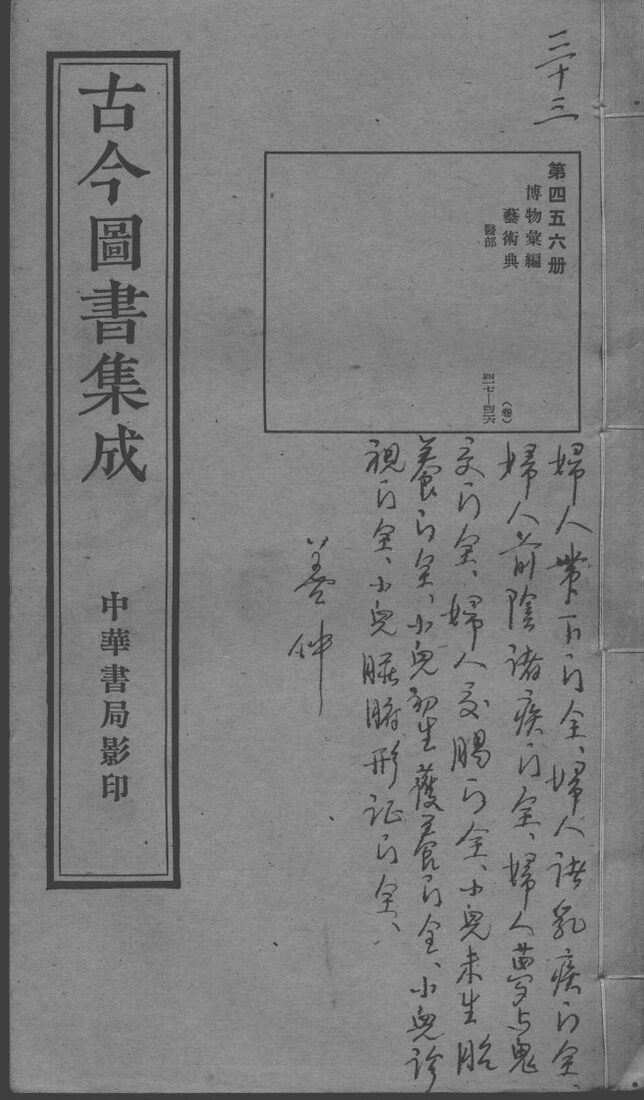 三十三
第四五六册
博物彙編
藝術典
醫部
(卷)
四一七—四二六
婦人帶下門全、婦人諸乳疾门全、
婦人前陰諸疾门全、婦人夢与鬼
交门全、婦人交腸门全、小兒未生胎
養门全、小兒初生護養门全、小兒診
視门全、小兒臟腑形证门全、
古今圖書集成
中華書局影印